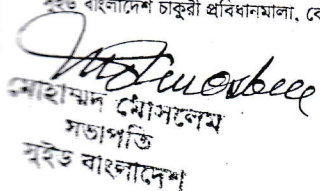 সুইড বাংলাদেশ চাকুরী প্রবিধানমালা,
মোহাম্মদ মোসলেম
সভাপতি
সুইড বাংলাদেশ